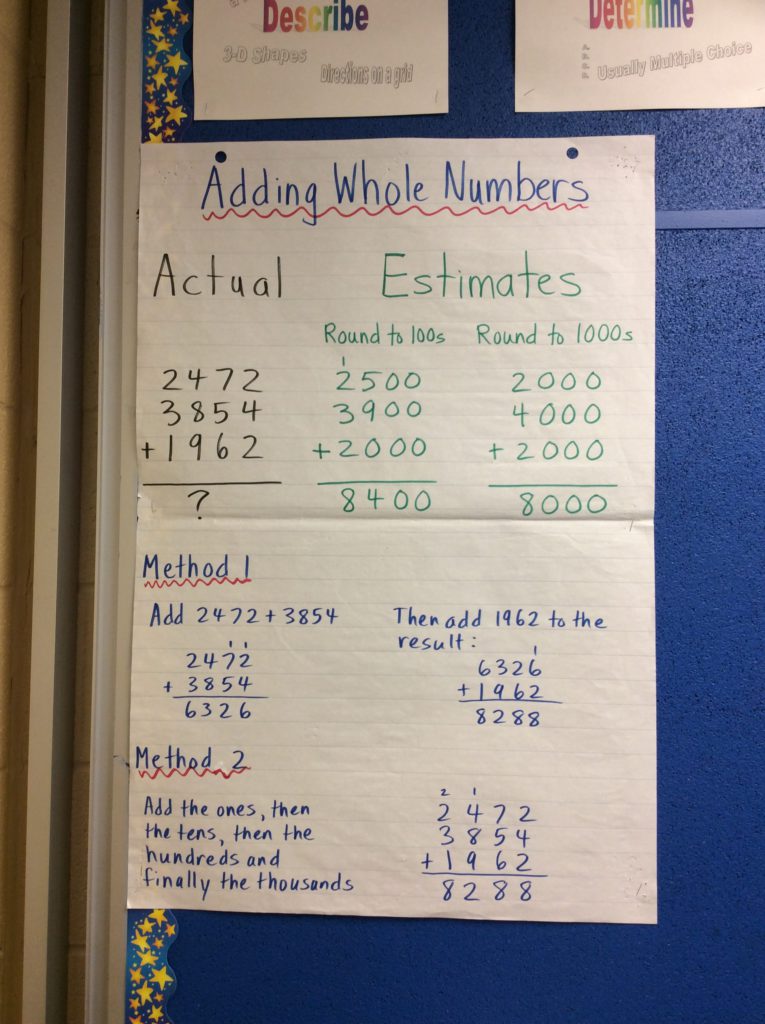 Describe
3-D Shapes
Directions on a grid
Determine
Usually Multiple Choice
Adding Whole Numbers
Actual
Estimates
Round to 100s
Round to 1000s
2472
3854
+1962
?
1
2500
3900
+2000
8400
2000
4000
+2000
8000
Method 1
Add 2472+3854
1 1
2472
+ 3854
6326
Then add 1962 to the
result:
1
6326
+1962
8288
Method 2
Add the ones, then
the tens, then the
hundreds and
finally the thousands
2 1
2472
3854
+1962
8288